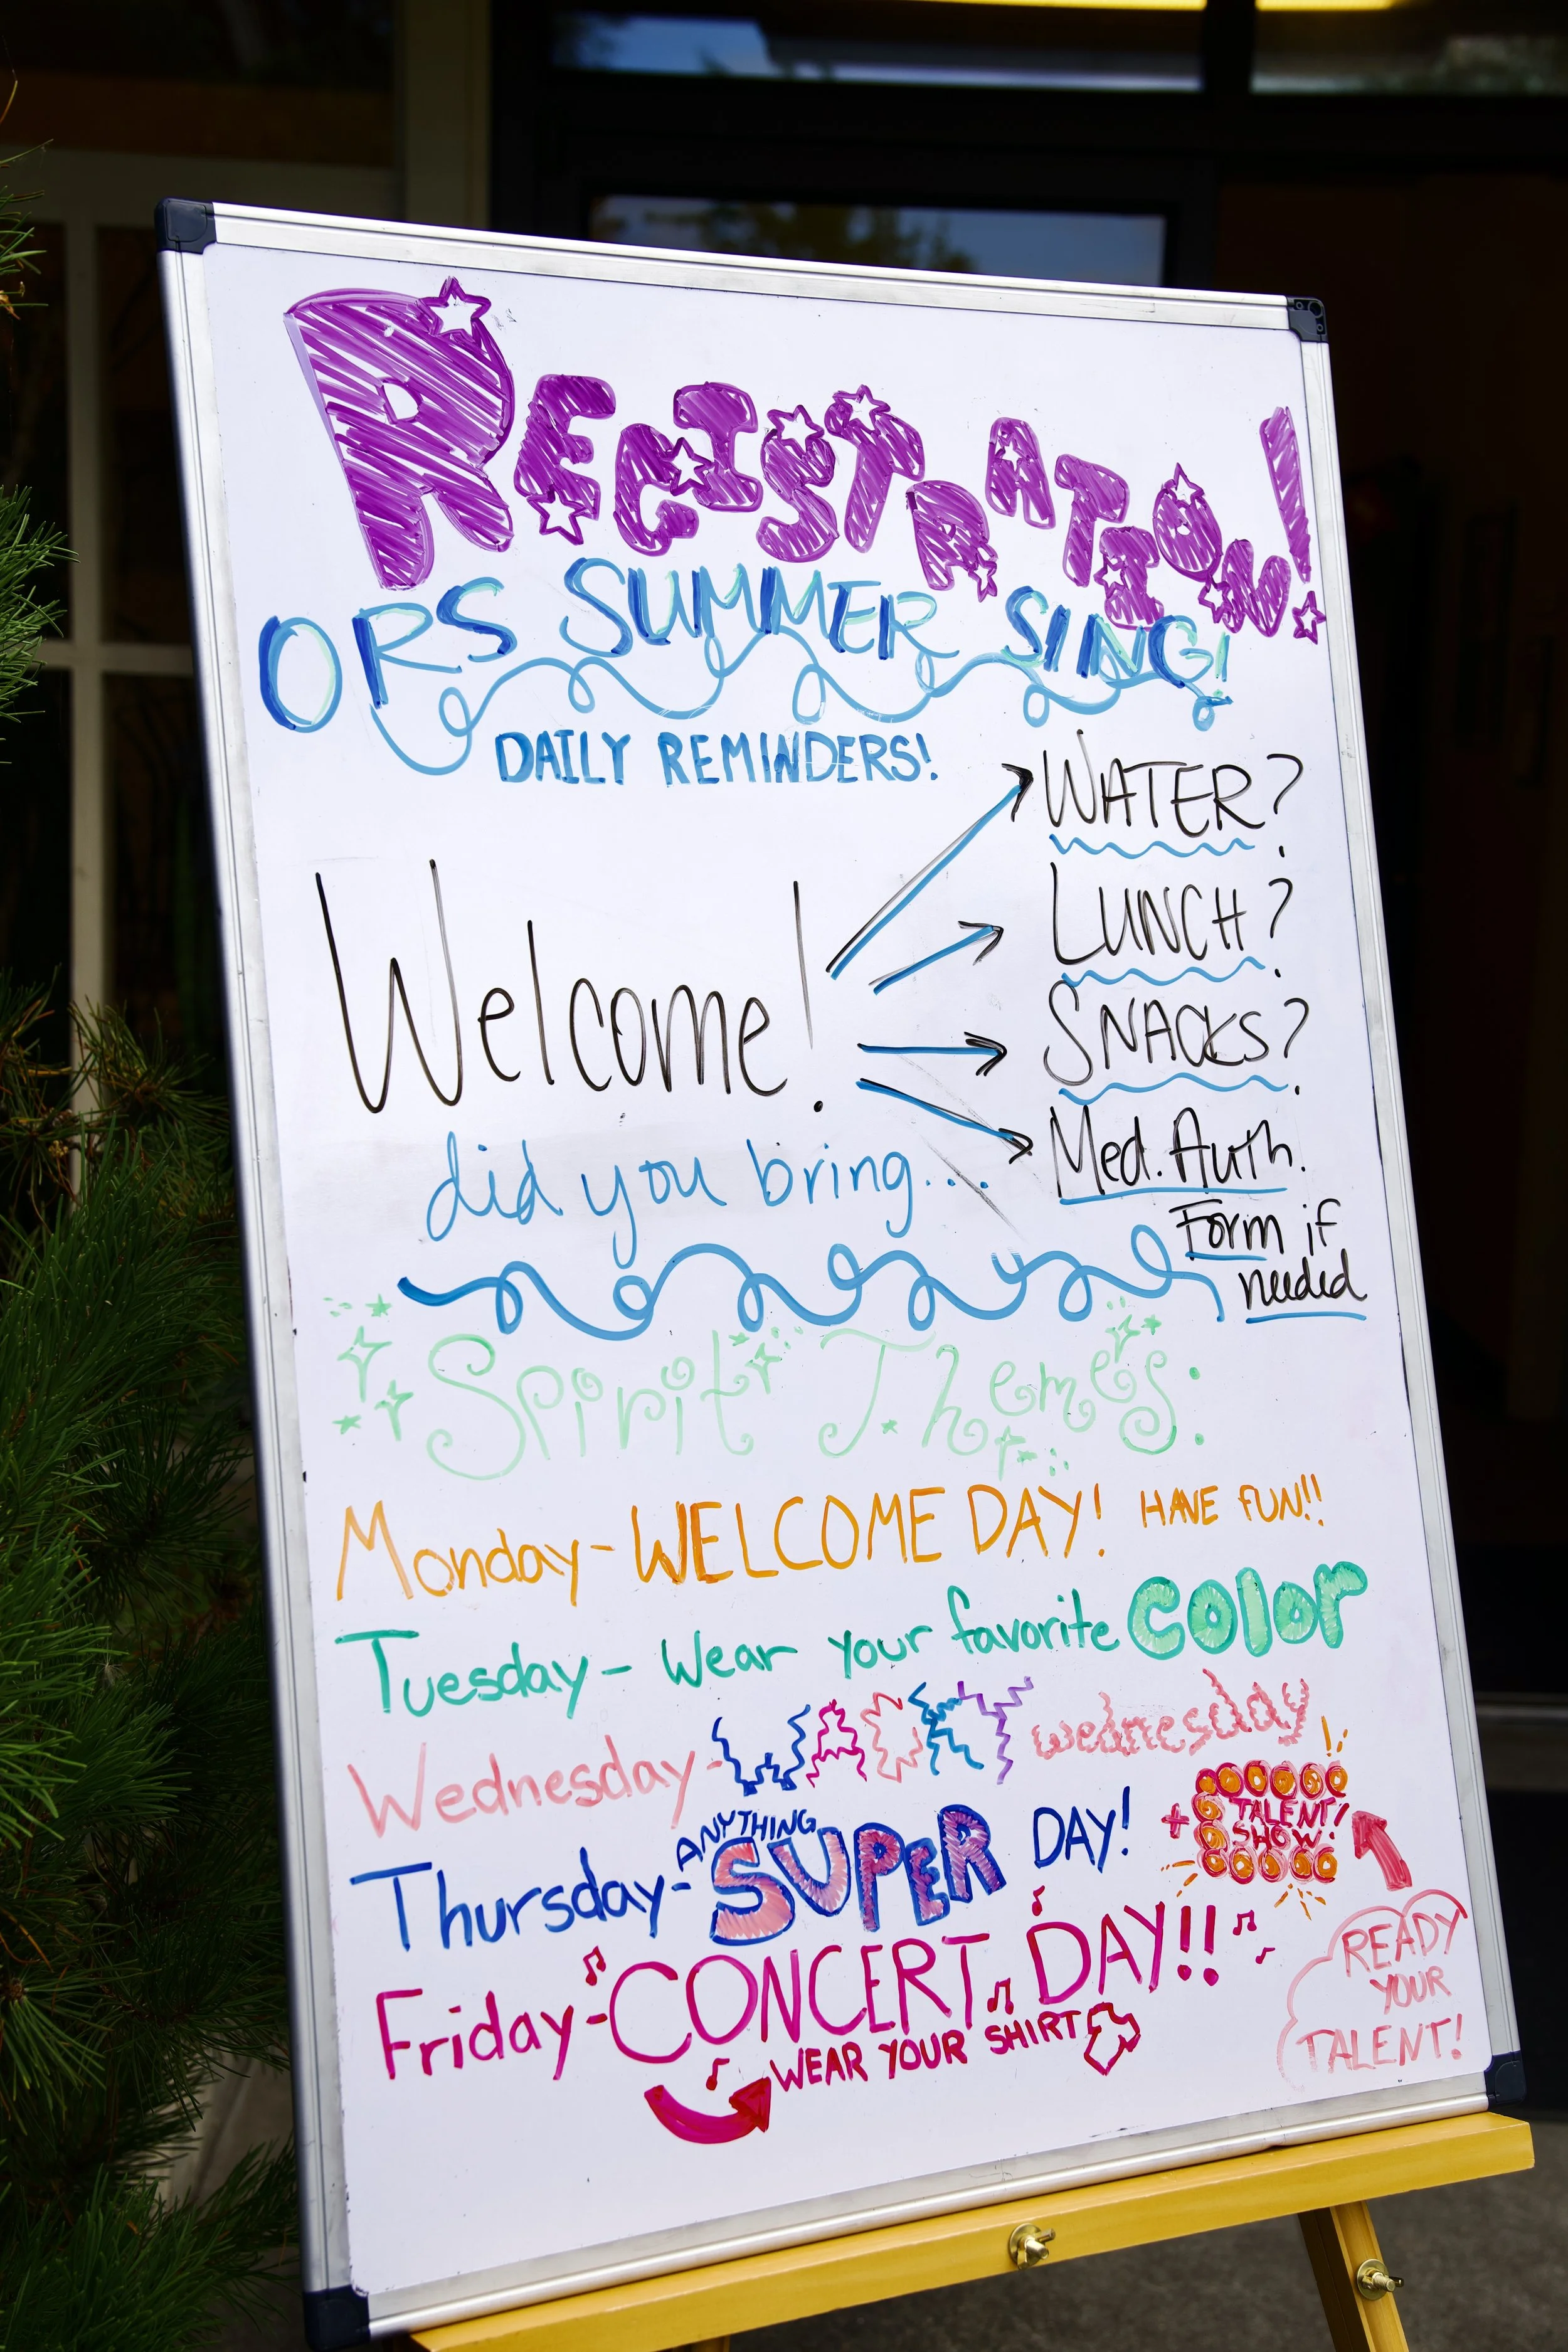 REGISTRATION!
ORS SUMMER SING!
DAILY REMINDERS!
Welcome!
did you bring....
WATER?
LUNCH?
SNACKS?
Med. Auth.
Form if
needed
Spirit Themes:
Monday - WELCOME DAY! HAVE FUN!!
Tuesday - Wear your favorite color
Wednesday - WACKY wednesday
Thursday - ANYTHING SUPER DAY!
+ TALENT
SHOW!
READY
YOUR
TALENT!
Friday - CONCERT DAY!!
WEAR YOUR SHIRT